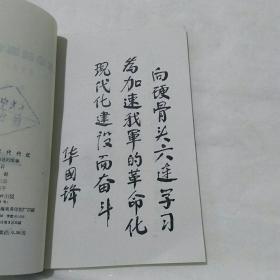 向硬骨头六连学习
为加速我軍的革命化
现代化建設而奋斗
华国锋